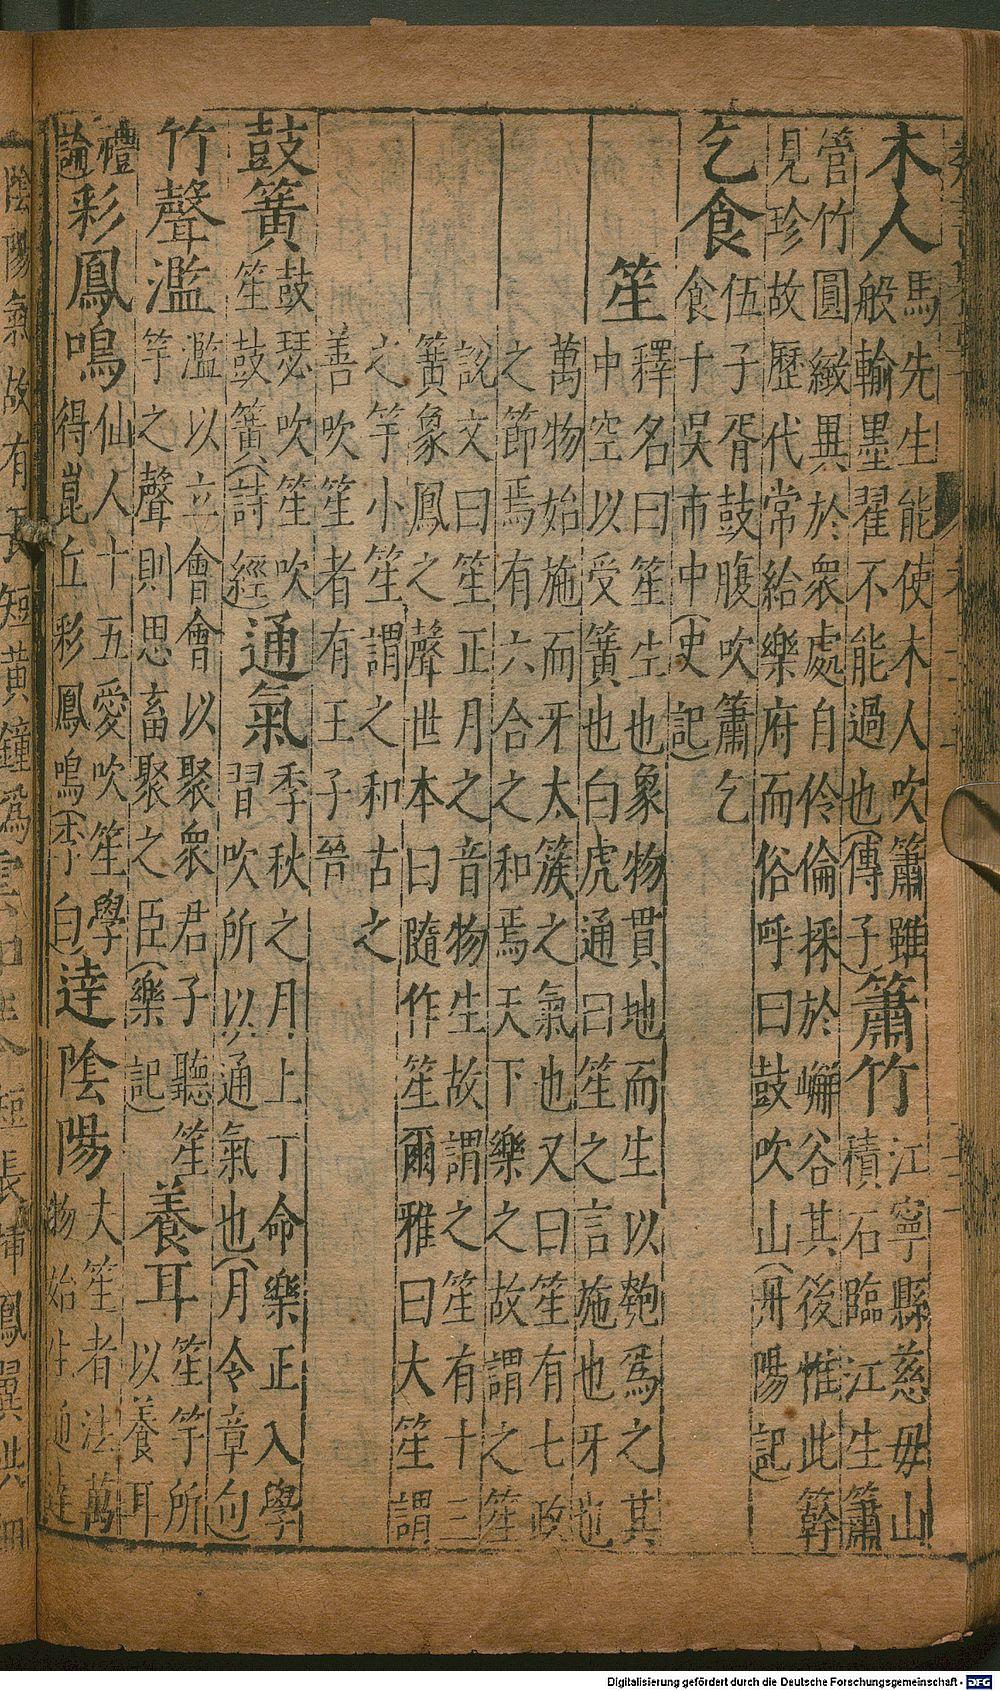 木人
馬先生能使木人吹簫雖
般輸墨翟不能過也(傳子)
簫竹
江寧縣慈毋山
積石臨江生簫
管竹圓緻異於衆處自伶倫採於嶰谷其後惟此幹
見珍故歷代常給樂府而俗呼曰鼓吹山(丹陽記)
乞食
伍子胥鼓腹吹簫乞
食于吳市中(史記)
笙
釋名曰笙生也象物貫地而生以匏爲之其
中空以受簧也白虎通曰笙之言施也牙也
萬物始施而牙太簇之氣也又曰笙有七政
之節焉有六合之和焉天下樂之故謂之笙
說文曰笙正月之音物生故謂之笙有十三
簧象鳳之聲世本曰隨作笙爾雅曰大笙謂
之竽小笙謂之和古之
善吹笙者有王子晉
鼓簧
鼓瑟吹笙吹
笙鼓簧(詩經)
通氣
季秋之月上丁命樂正入學
習吹所以通氣也(月令章句)
竹聲濫
濫以立會會以聚衆君子聽笙
竽之聲則思畜聚之臣(樂記)
養耳
笙竽所
以養耳
禮
論
彩鳳鳴
仙人十五愛吹笙學
得崑丘彩鳳鳴(李白)
達陰陽
夫笙者法萬
物始生通達
陰陽氣故有長短黄鐘爲
短長挿鳳翼洪細
Digitalisierung gefördert durch die Deutsche Forschungsgemeinschaft - DFG